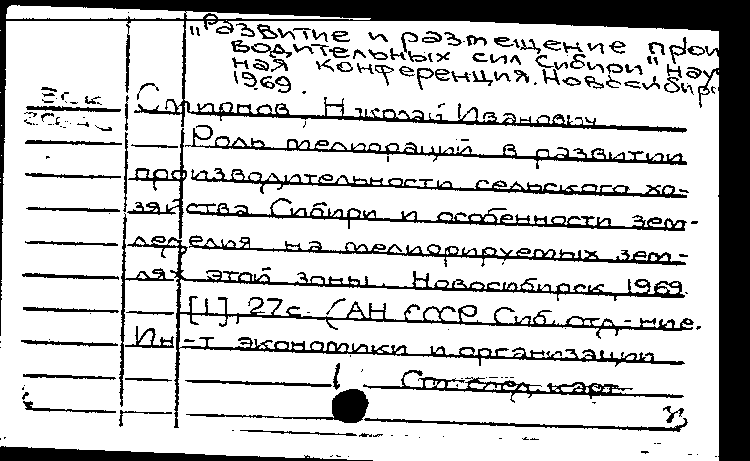 „Развитие и размещение прои
водительных сил Сибири" науч
ная конференция. Новосибирс
1969.
Смирнов, Николай Иванович
Роль мелиораций в развитии
производительности сельского хо-
зяйства Сибири и особенности зем-
леделия на мелиорируемых зем-
лях этой зоны. Новосибирск, 1969.
[1], 27с. (АН СССР. Сиб. отд-ние.
Ин-т экономики и организации
См. след. карт.